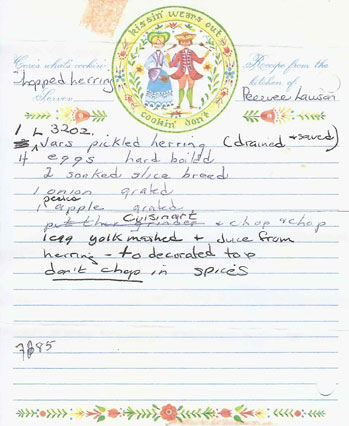 kissin' wears out
cookin' don't
Here's what's cookin'
Recipe from the
Chopped herring
kitchen of
Serves
Peeewee Lawson
1 L 32oz.
Jars pickled herring (drained + saved)
4 eggs hard boiled
2 soaked slice bread
1 onion grated
1 apple grated
Cuisinart
put thru grinder + chop + chop
1 egg yolk mashed + Juice from
herring - to decorated top
don't chop in spices